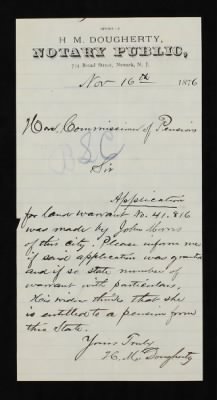 OFFICE OF
H. M. DOUGHERTY,
NOTARY PUBLIC,
Broad Street, Newark, N. J.
Nov 16th 1876
Hon. Commissioner of Pensions
Sir
Application
for land warrant No. 41.816
was made by John
of this city. Please inform me
if said application was granted
and if so state number of
warrant with particulars,
His widow thinks that she
is entitled to a pension from
this State.
Yours Truly
H. M. Dougherty